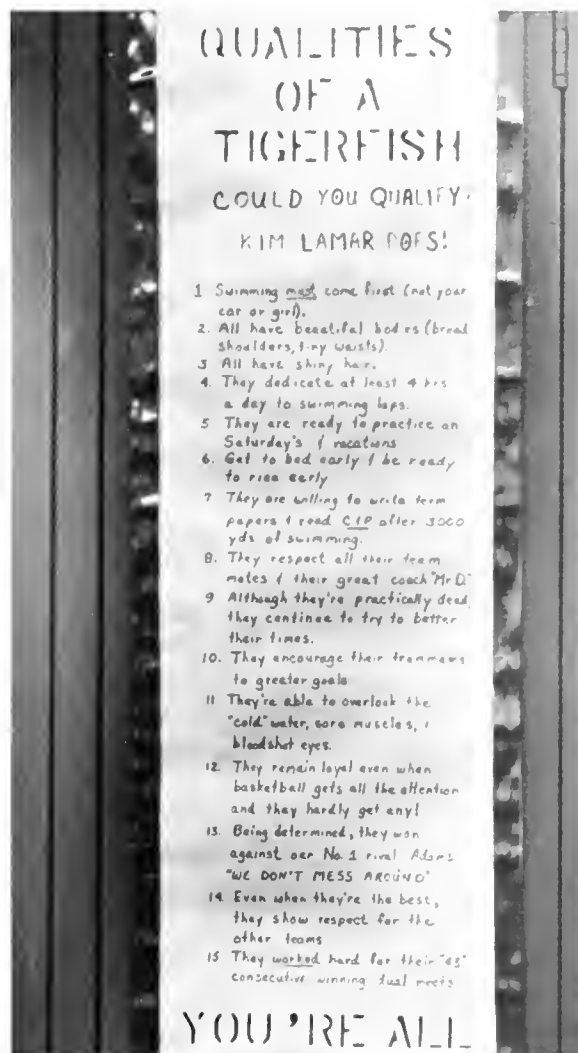 QUALITIES
OF A
TIGERFISH
COULD YOU QUALIFY.
KIM LAMAR DOES!
1 Swimming must come first (not your
car or girl).
2. All have beautiful bodies (broad
shoulders, tiny waists).
3 All have shiny hair.
4. They dedicate at least 4 hrs
a day to swimming laps.
5 They are ready to practice on
Saturday's & vacations
6. Get to bed early & be ready
to rise early
7 They are willing to write term
papers & read CIP after 3000
yds of swimming.
8. They respect all their team
mates & their great coach "Mr D."
9 Although they're practically dead,
they continue to try to better
their times.
10. They encourage their
to greater goals
11 They're able to overlook the
"cold" water, sore muscles, &
bloodshot eyes.
12. They remain loyal even when
basketball gets all the attention
and they hardly get any!
13. Being determined, they won
against our No. 1 rival Adams
"WE DON'T MESS AROUND"
14. Even when they're the best,
they show respect for the
other teams
15 They worked hard for their
consecutive winning dual meets
YOU'RE ALL